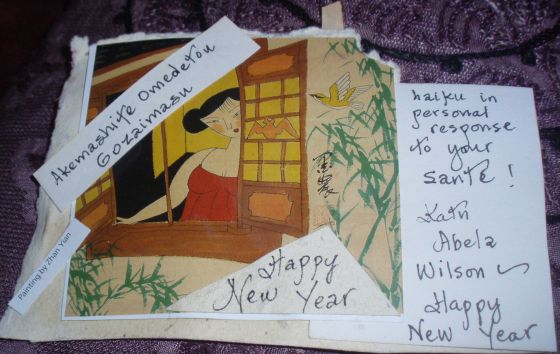 Akemashite Omedetou
Gozaimasu
Painting by Zhan Yuan
Happy
New Year
haiku in
personal
response
to your
santé!
Kath
Abela
Wilson
Happy
New Year